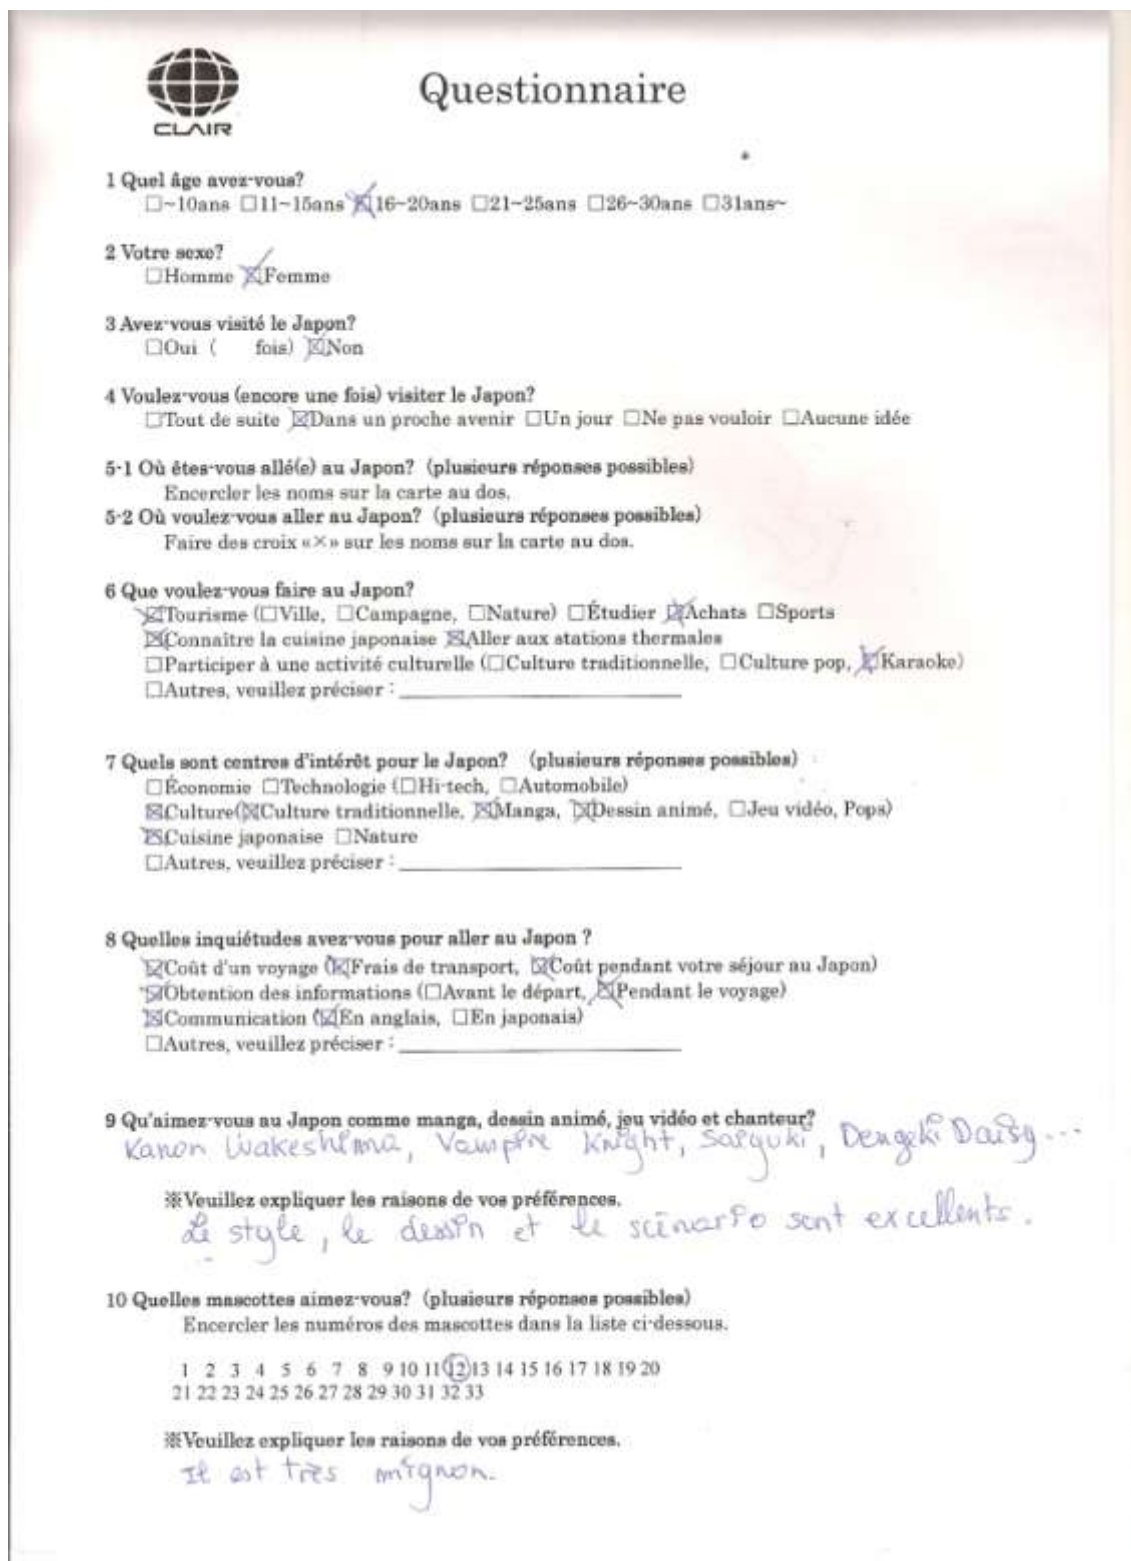 CLAIR
Questionnaire
1 Quel âge avez-vous?
☐~10ans ☐11~15ans ☒16~20ans ☐21~25ans ☐26~30ans ☐31ans~
2 Votre sexe?
☐Homme ☒Femme
3 Avez-vous visité le Japon?
☐Oui ( fois) ☒Non
4 Voulez-vous (encore une fois) visiter le Japon?
☐Tout de suite ☒Dans un proche avenir ☐Un jour ☐Ne pas vouloir ☐Aucune idée
5-1 Où êtes-vous allé(e) au Japon? (plusieurs réponses possibles)
Encercler les noms sur la carte au dos.
5-2 Où voulez-vous aller au Japon? (plusieurs réponses possibles)
Faire des croix «×» sur les noms sur la carte au dos.
6 Que voulez-vous faire au Japon?
☒Tourisme (☐Ville, ☐Campagne, ☐Nature) ☐Étudier ☒Achats ☐Sports
☒Connaître la cuisine japonaise ☒Aller aux stations thermales
☐Participer à une activité culturelle (☐Culture traditionnelle, ☐Culture pop, ☒Karaoke)
☐Autres, veuillez préciser :
7 Quels sont centres d'intérêt pour le Japon? (plusieurs réponses possibles)
☐Économie ☐Technologie (☐Hi-tech, ☐Automobile)
☒Culture(☒Culture traditionnelle, ☒Manga, ☒Dessin animé, ☐Jeu vidéo, Pops)
☒Cuisine japonaise ☐Nature
☐Autres, veuillez préciser :
8 Quelles inquiétudes avez-vous pour aller au Japon ?
☒Coût d'un voyage (☒Frais de transport, ☒Coût pendant votre séjour au Japon)
☒Obtention des informations (☐Avant le départ, ☒Pendant le voyage)
☒Communication (☒En anglais, ☐En japonais)
☐Autres, veuillez préciser :
9 Qu'aimez-vous au Japon comme manga, dessin animé, jeu vidéo et chanteur?
Kanon Wakeshima, Vampire Knight, Saiyuki, Dengeki Daisy...
※Veuillez expliquer les raisons de vos préférences.
Le style, le dessin et le scénario sont excellents.
10 Quelles mascottes aimez-vous? (plusieurs réponses possibles)
Encercler les numéros des mascottes dans la liste ci-dessous.
1 2 3 4 5 6 7 8 9 10 11 12 13 14 15 16 17 18 19 20
21 22 23 24 25 26 27 28 29 30 31 32 33
※Veuillez expliquer les raisons de vos préférences.
Il est très mignon.